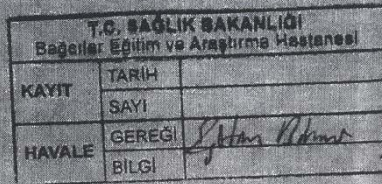 T.C. SAĞLIK BAKANLIĞI
Bağcılar Eğitim ve Araştırma Hastanesi
KAYIT
TARİH
SAYI
HAVALE
GEREĞİ
BİLGİ